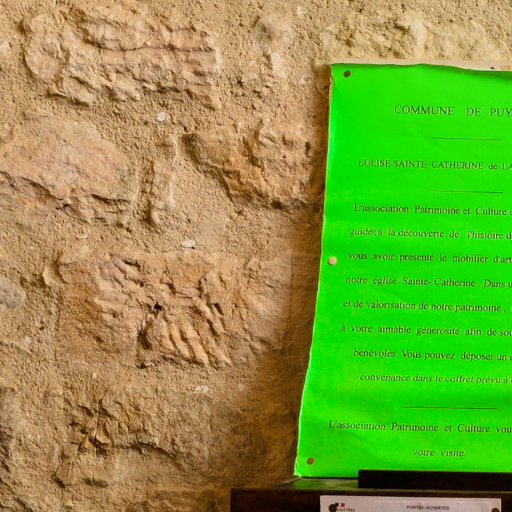 COMMUNE DE PUY
EGLISE SAINTE CATHERINE de LA
L'association Patrimoine et Culture
guidé à la découverte de l'histoire
vous avoir présenté le mobilier d'art
notre église Sainte-Catherine. Dans
et de valorisation de notre patrimoine,
à votre aimable générosité afin de
bénévoles. Vous pouvez déposer un
convenance dans le coffret prévu à
L'association Patrimoine et Culture vou
votre visite.
PORTES-OUVERTES